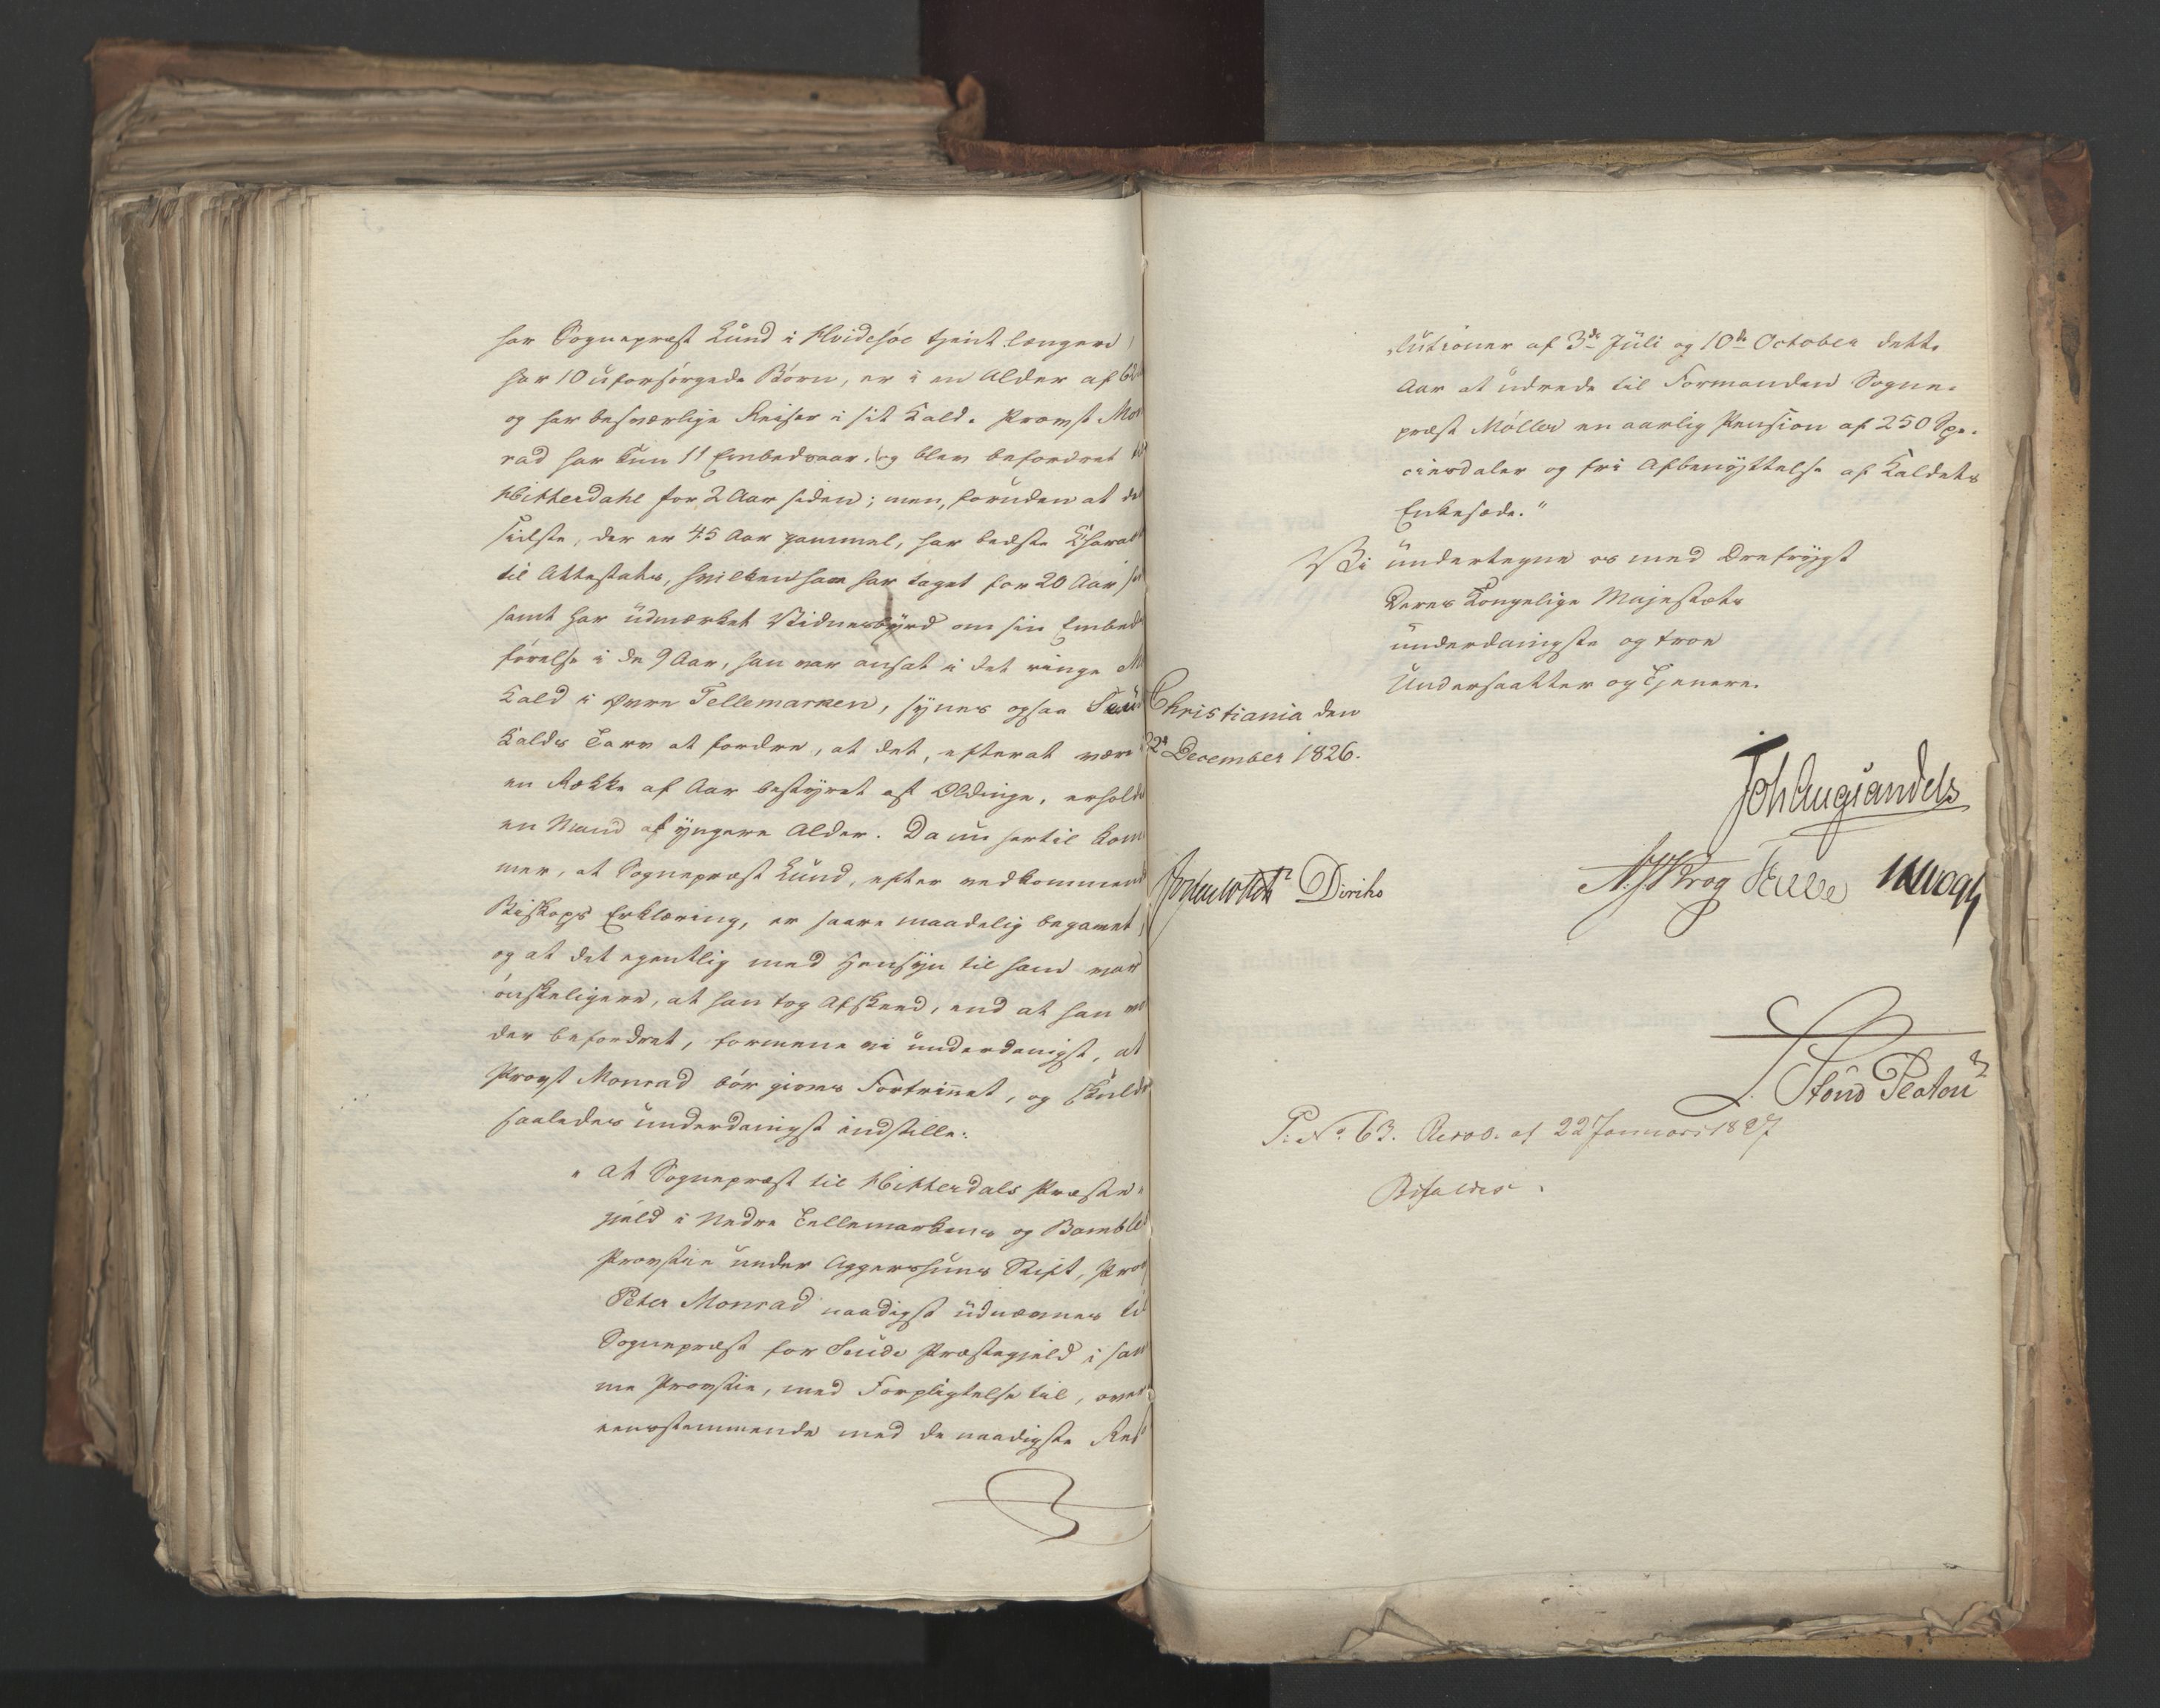 har Sognepræst Lund i Hvidesøe tjent længere,
har 10 uforsørgede Børn, er i en Alder af
og har besværlige Reiser i sit Kald. Provst Mon
rad har kun 11 Embedsaar, og blev befordret til
Hitterdahl for 2 Aar siden; men, foruden at den
sidste, der er 45 Aar gammel, har bedste Charak
til Attestats, hvilken han har taget for 20 Aar
samt har udmærket Vidnesbyrd om sin Embeds
førelse i de 9 Aar, han var ansat i det ringe
Kald i Øvre Tellemarken, synes ogsaa
Kalds Tarv at fordre, at det, efterat være
en Række af Aar bestyret af Oldinge, erholder
en Mand af yngere Alder. Da nu hertil kom
mer, at Sognepræst Lund, efter vedkommende
Biskops Erklæring, er saare maadelig begavet,
og at det egentlig med Hensyn til ham var
ønskeligere, at han tog Afskeed, end at han
der befordret, formene vi underdanigst, at
Provst Monrad bør gives Fortrinnet, og skulde
saaledes underdanigst indstille:
"at Sognepræst til Hitterdals Præste-
gjeld i Nedre Tellemarkens og Bamble
Provstie under Aggershuus Stift, Provst
Peter Monrad naadigst udnævnes til
Sognepræst for Seude Præstegjeld i sam
me Provstie, med Forpligtelse til, over
eensstemmende med de naadigste Reso
lutioner af 3de Juli og 10de October dette
Aar at udrede til Formanden Sogne-
præst Møller en aarlig Pension af 250 Spe-
ciesdaler og fri Afbenyttelse af Kaldets
Enkesæde."
Vi undertegne os med Ærefrygt
Deres Kongelige Majestæts
underdanigste og troe
Undersaatter og Tjenere.
Christiania den
22de December 1826.
Joh Aug Sandels
Diriks
Krog
Vogt
P. No. 63. Resol. af 22 Januari 1827
Bifaldes.